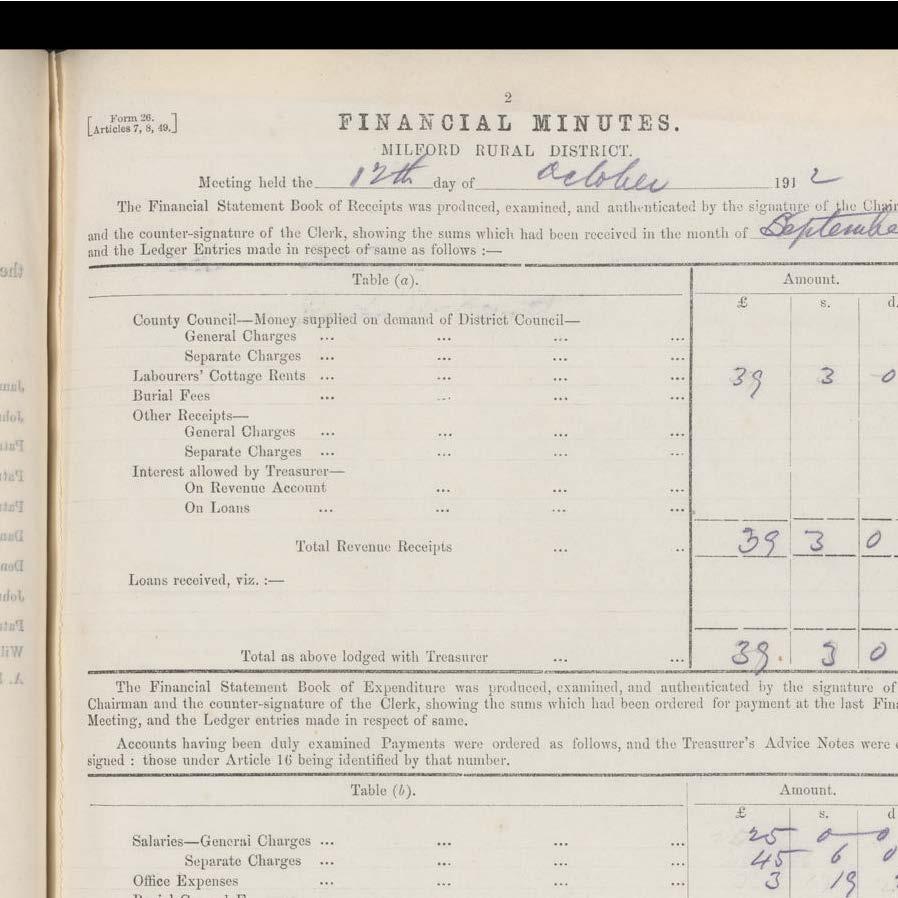 2
[Form 26. Articles 7, 8, 49.]
FINANCIAL MINUTES.
MILFORD RURAL DISTRICT.
Meeting held the 12th day of October 1912
The Financial Statement Book of Receipts was produced, examined, and authenticated by the signature of the Chair
and the counter-signature of the Clerk, showing the sums which had been received in the month of Septembe
and the Ledger Entries made in respect of same as follows :—
Table (a). Amount.
£ s. d.
County Council—Money supplied on demand of District Council—
General Charges ... ... ... ...
Separate Charges ... ... ... ...
Labourers' Cottage Rents ... ... ... ... 39 3 0
Burial Fees ... ... ... ...
Other Receipts—
General Charges ... ... ... ...
Separate Charges ... ... ... ...
Interest allowed by Treasurer—
On Revenue Account ... ... ...
On Loans ... ... ... ...
Total Revenue Receipts ... .. 39 3 0
Loans received, viz. :—
Total as above lodged with Treasurer ... ... 39. 3 0
The Financial Statement Book of Expenditure was produced, examined, and authenticated by the signature of
Chairman and the counter-signature of the Clerk, showing the sums which had been ordered for payment at the last Fina
Meeting, and the Ledger entries made in respect of same.
Accounts having been duly examined Payments were ordered as follows, and the Treasurer's Advice Notes were
signed : those under Article 16 being identified by that number.
Table (b). Amount.
£ s. d
Salaries—General Charges ... ... ... ... 25 0 0
Separate Charges ... ... ... ... 45 6 0
Office Expenses ... ... ... ... 3 19